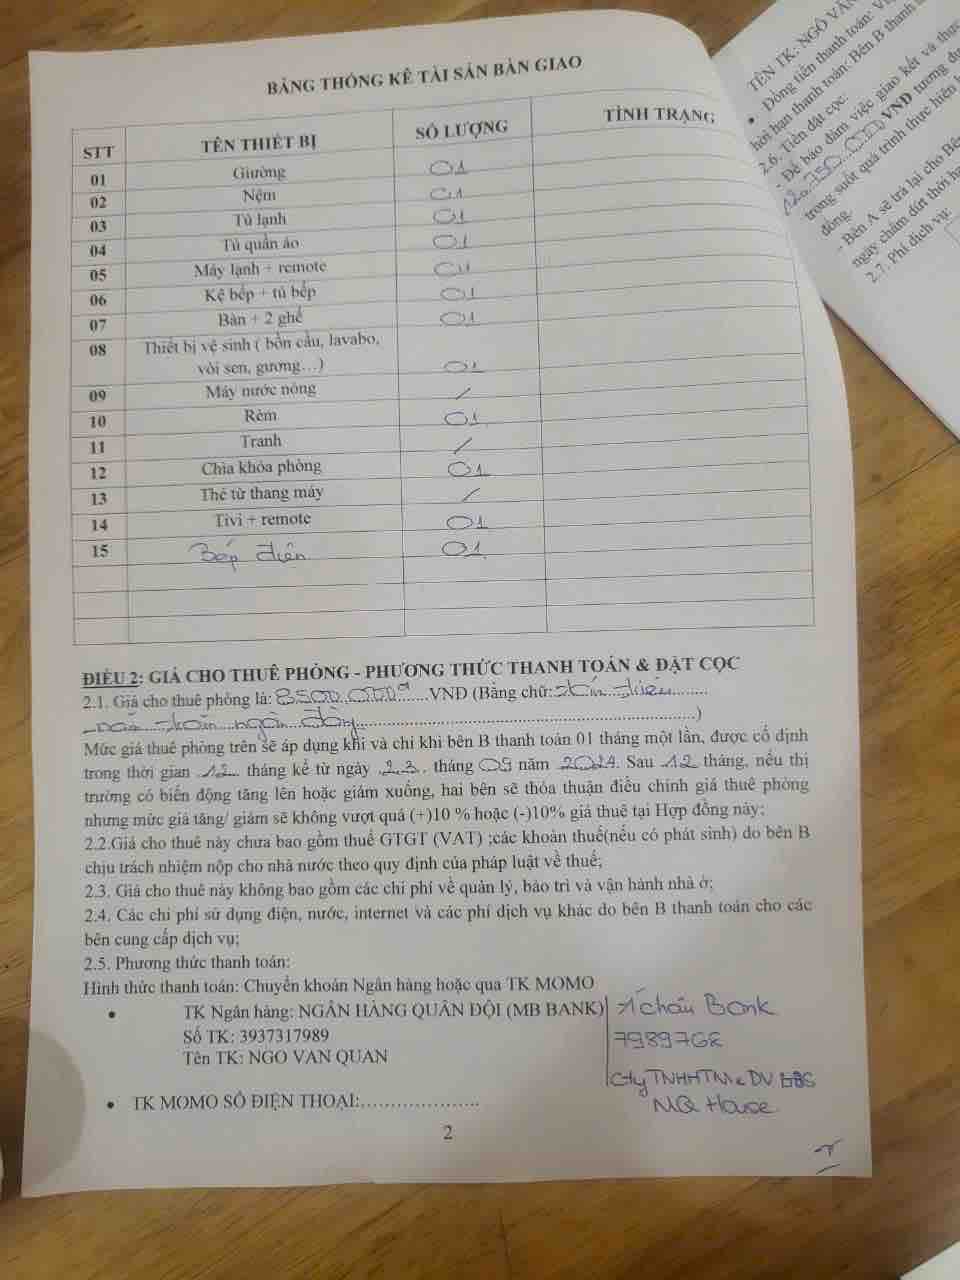 BẢNG THỐNG KÊ TÀI SẢN BÀN GIAO
STT TÊN THIẾT BỊ SỐ LƯỢNG TÌNH TRẠNG
01 Giường 01
02 Nệm 01
03 Tủ lạnh 01
04 Tủ quần áo 01
05 Máy lạnh + remote 01
06 Kệ bếp + tủ bếp 01
07 Bàn + 2 ghế 01
08 Thiết bị vệ sinh ( bồn cầu, lavabo,
vòi sen, gương…) 01
09 Máy nước nóng /
10 Rèm 01
11 Tranh /
12 Chìa khóa phòng 01
13 Thẻ từ thang máy /
14 Tivi + remote 01
15 Bếp điện 01
ĐIỀU 2: GIÁ CHO THUÊ PHÒNG - PHƯƠNG THỨC THANH TOÁN & ĐẶT CỌC
2.1. Giá cho thuê phòng là: 8.500.000đ VNĐ (Bằng chữ: tám triệu
năm trăm ngàn đồng)
Mức giá thuê phòng trên sẽ áp dụng khi và chỉ khi bên B thanh toán 01 tháng một lần, được cố định
trong thời gian 12 tháng kể từ ngày 23, tháng 09 năm 2024. Sau 12 tháng, nếu thị
trường có biến động tăng lên hoặc giảm xuống, hai bên sẽ thỏa thuận điều chỉnh giá thuê phòng
nhưng mức giá tăng/ giảm sẽ không vượt quá (+)10 % hoặc (-)10% giá thuê tại Hợp đồng này;
2.2.Giá cho thuê này chưa bao gồm thuế GTGT (VAT) ;các khoản thuế(nếu có phát sinh) do bên B
chịu trách nhiệm nộp cho nhà nước theo quy định của pháp luật về thuế;
2.3. Giá cho thuê này không bao gồm các chi phí về quản lý, bảo trì và vận hành nhà ở;
2.4. Các chi phí sử dụng điện, nước, internet và các phí dịch vụ khác do bên B thanh toán cho các
bên cung cấp dịch vụ;
2.5. Phương thức thanh toán:
Hình thức thanh toán: Chuyển khoản Ngân hàng hoặc qua TK MOMO
• TK Ngân hàng: NGÂN HÀNG QUÂN ĐỘI (MB BANK)
Số TK: 3937317989
Tên TK: NGO VAN QUAN
Á Châu Bank
Cty TNHH TM & DV BĐS
MQ House
• TK MOMO SỐ ĐIỆN THOẠI:....................
2
TÊN TK: NGÔ VĂN
• Dòng tiền thanh toán:
hời hạn thanh toán: Bên B thanh
2.6. Tiền đặt cọc:
- Để bảo đảm việc giao kết và thực
VNĐ tương
trong suốt quá trình thực hiện
đồng.
- Bên A sẽ trả lại cho Bê
ngày chấm dứt thời hạ
2.7. Phí dịch vụ: